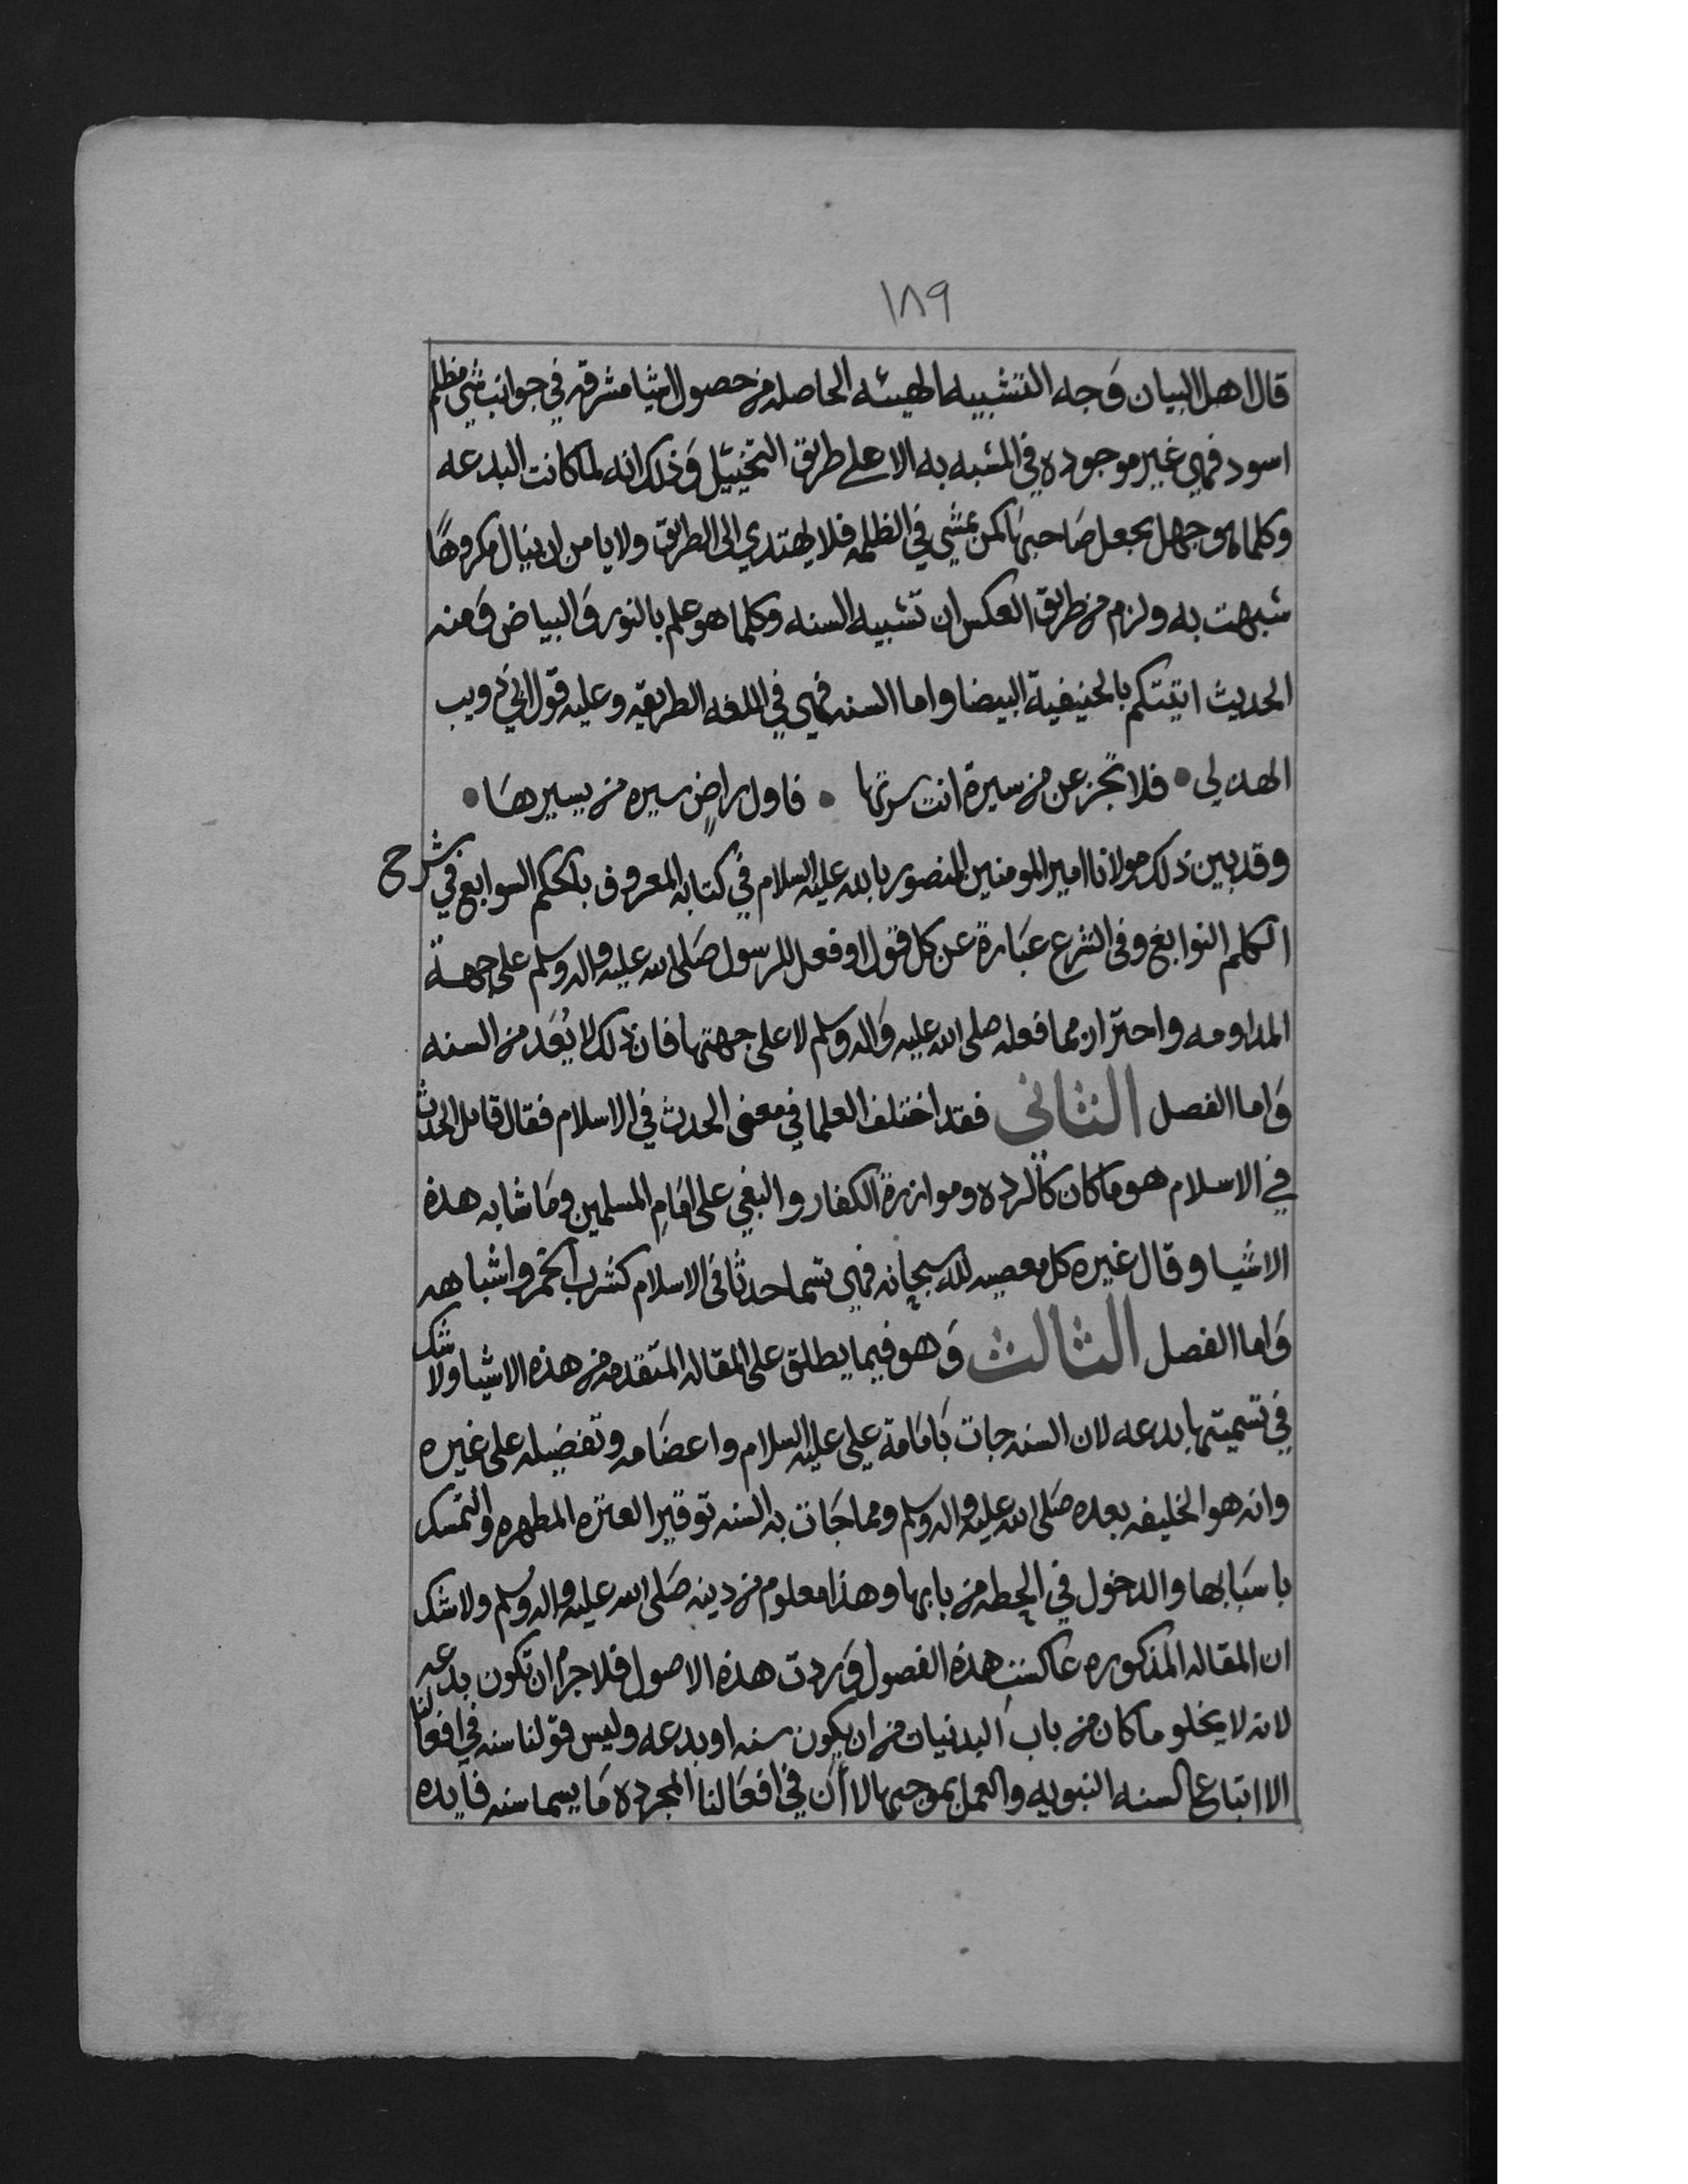 ١٨٩
قال اهل البيان وَجه التشبيه الهيئه الحاصله من حصول اشيا مشرقه في جوانب شي مظلم
اسود فهي غير موجوده في المشبه به الا على طريق التخييل وَذلك انه لما كانت البدعه
وكلما هو جهل يجعل صَاحبهَا كمن يمشي في الظلمه فلا يهتدي الى الطريق ولا يامن ان ينال مكروهًا
شبهت به ولزم من طريق العكس ان تشبيه السنه وكلما هو علم بالنور وَالبياض وَمنه
الحديث اتيتكم بالحنيفية البيضا واما السنه فهي في اللغه الطريقه وعليه قول ابي ذويب
الهذلي • فلا تجزعن من سيرة انت سرتها • فاول راضٍ سيره من يسيرهَا •
وقد بين ذلك مولانا امير المومنين المنصور بالله عليه السلام في كتابه المعروف بالحكم السوابع في شرح
الكلم النوابغ وفي الشرع عبَارة عن كل قول او فعل للرسول صَلى الله عليه واله وسلم على جهة
المداومه واحتراز مما فعله صلى الله عليه وَاله وسلم لا على جهتها فان ذلك لا يُعَد من السنه
وَاما الفصل الثاني فقد اختلف العلما في معنى الحدث في الاسلام فقال قايل الحدث
في الاسلام هو ما كان كالرده وموازرة الكفار والبغي على امَامِ المسلمين ومَا شابه هذه
الاشيا وقال غيره كل معصيه لله سبحانه فهي تسما حدثا في الاسلام كشرب الخمر واشباهه
وَاما الفصل الثالث وَهو فيما يطلق على المقاله المتقدمه من هذه الاشيا ولا شك
في تسميتها بدعه لان السنه جات بَامَامة علي عليه السلام واعضَامه وتفضيله على غيره
وانه هو الخليفه بعده صَلى الله عليه واله وسلم ومما جَات به السنه توقير العتره المطهره والتمسك
باسبَابها والدخول في الحطه من بابها وهذا معلوم من دينه صَلى الله عليه واله وسلم ولا شك
ان المقاله المذكوره عاكست هذه الفصول وَردت هذه الاصول فلا جرم ان تكون بدعه
لانه لا يخلو ما كان من باب البدنيات من ان يكون سنه او بدعه وليس قولنا سنه في افعالنا
الا اتباع السنه النبويه والعمل بموجبها لا أَن في افعَالنا المجرده مَا يسما سنه فايده